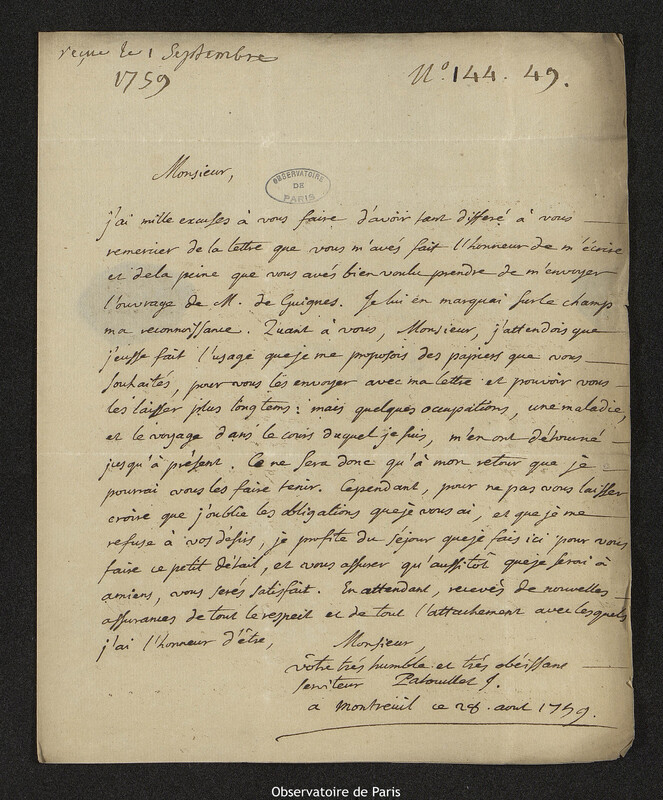 reçue le 1 Septembre
1759
N.º 144. 49.
Monsieur,
OBSERVATOIRE
DE
PARIS
j'ai mille excuses à vous faire d'avoir tant différé à vous
remercier de la lettre que vous m'avés fait l'honneur de m'écrire
et de la peine que vous avés bien voulu prendre de m'envoyer
l'ouvrage de M. de Guignes. Je lui en marquai sur le champ
ma reconnoissance. Quant à vous, Monsieur, j'attendois que
j'eusse fait l'usage que je me proposois des papiers que vous
souhaités, pour vous les envoyer avec ma lettre et pouvoir vous
les laisser plus longtems: mais quelques occupations, une maladie,
et le voyage dans le cours duquel je suis, m'en ont détourné
jusqu'à présent. Ce ne sera donc qu'à mon retour que je
pourrai vous les faire tenir. Cependant, pour ne pas vous laisser
croire que j'oublie les obligations que je vous ai, et que je me
refuse à vos désirs, je profite du séjour que je fais ici pour vous
faire ce petit détail, et vous assurer qu'aussitôt que je serai à
amiens, vous serés satisfait. En attendant, recevés de nouvelles
assurances de tout le respect et de tout l'attachement avec lesquels
j'ai l'honneur d'être,
Monsieur,
vôtre très humble et très obéissant
serviteur Patouillet J.
a Montreuil ce 28. aout 1759.
Observatoire de Paris